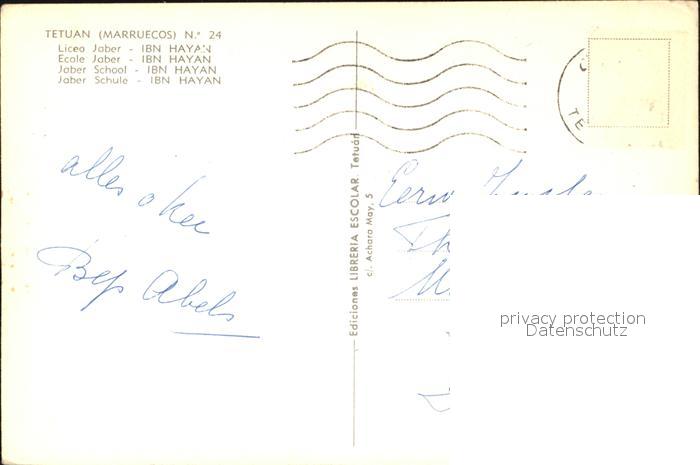 TETUAN (MARRUECOS) N.º 24
Liceo Jaber - IBN HAYAN
Ecole Jaber - IBN HAYAN
Jaber School - IBN HAYAN
Jaber Schule - IBN HAYAN
alles oker
Bep Abels
Ediciones LIBRERIA ESCOLAR. Tetuán
c/. Achara May, 5
TE
privacy protection
Datenschutz